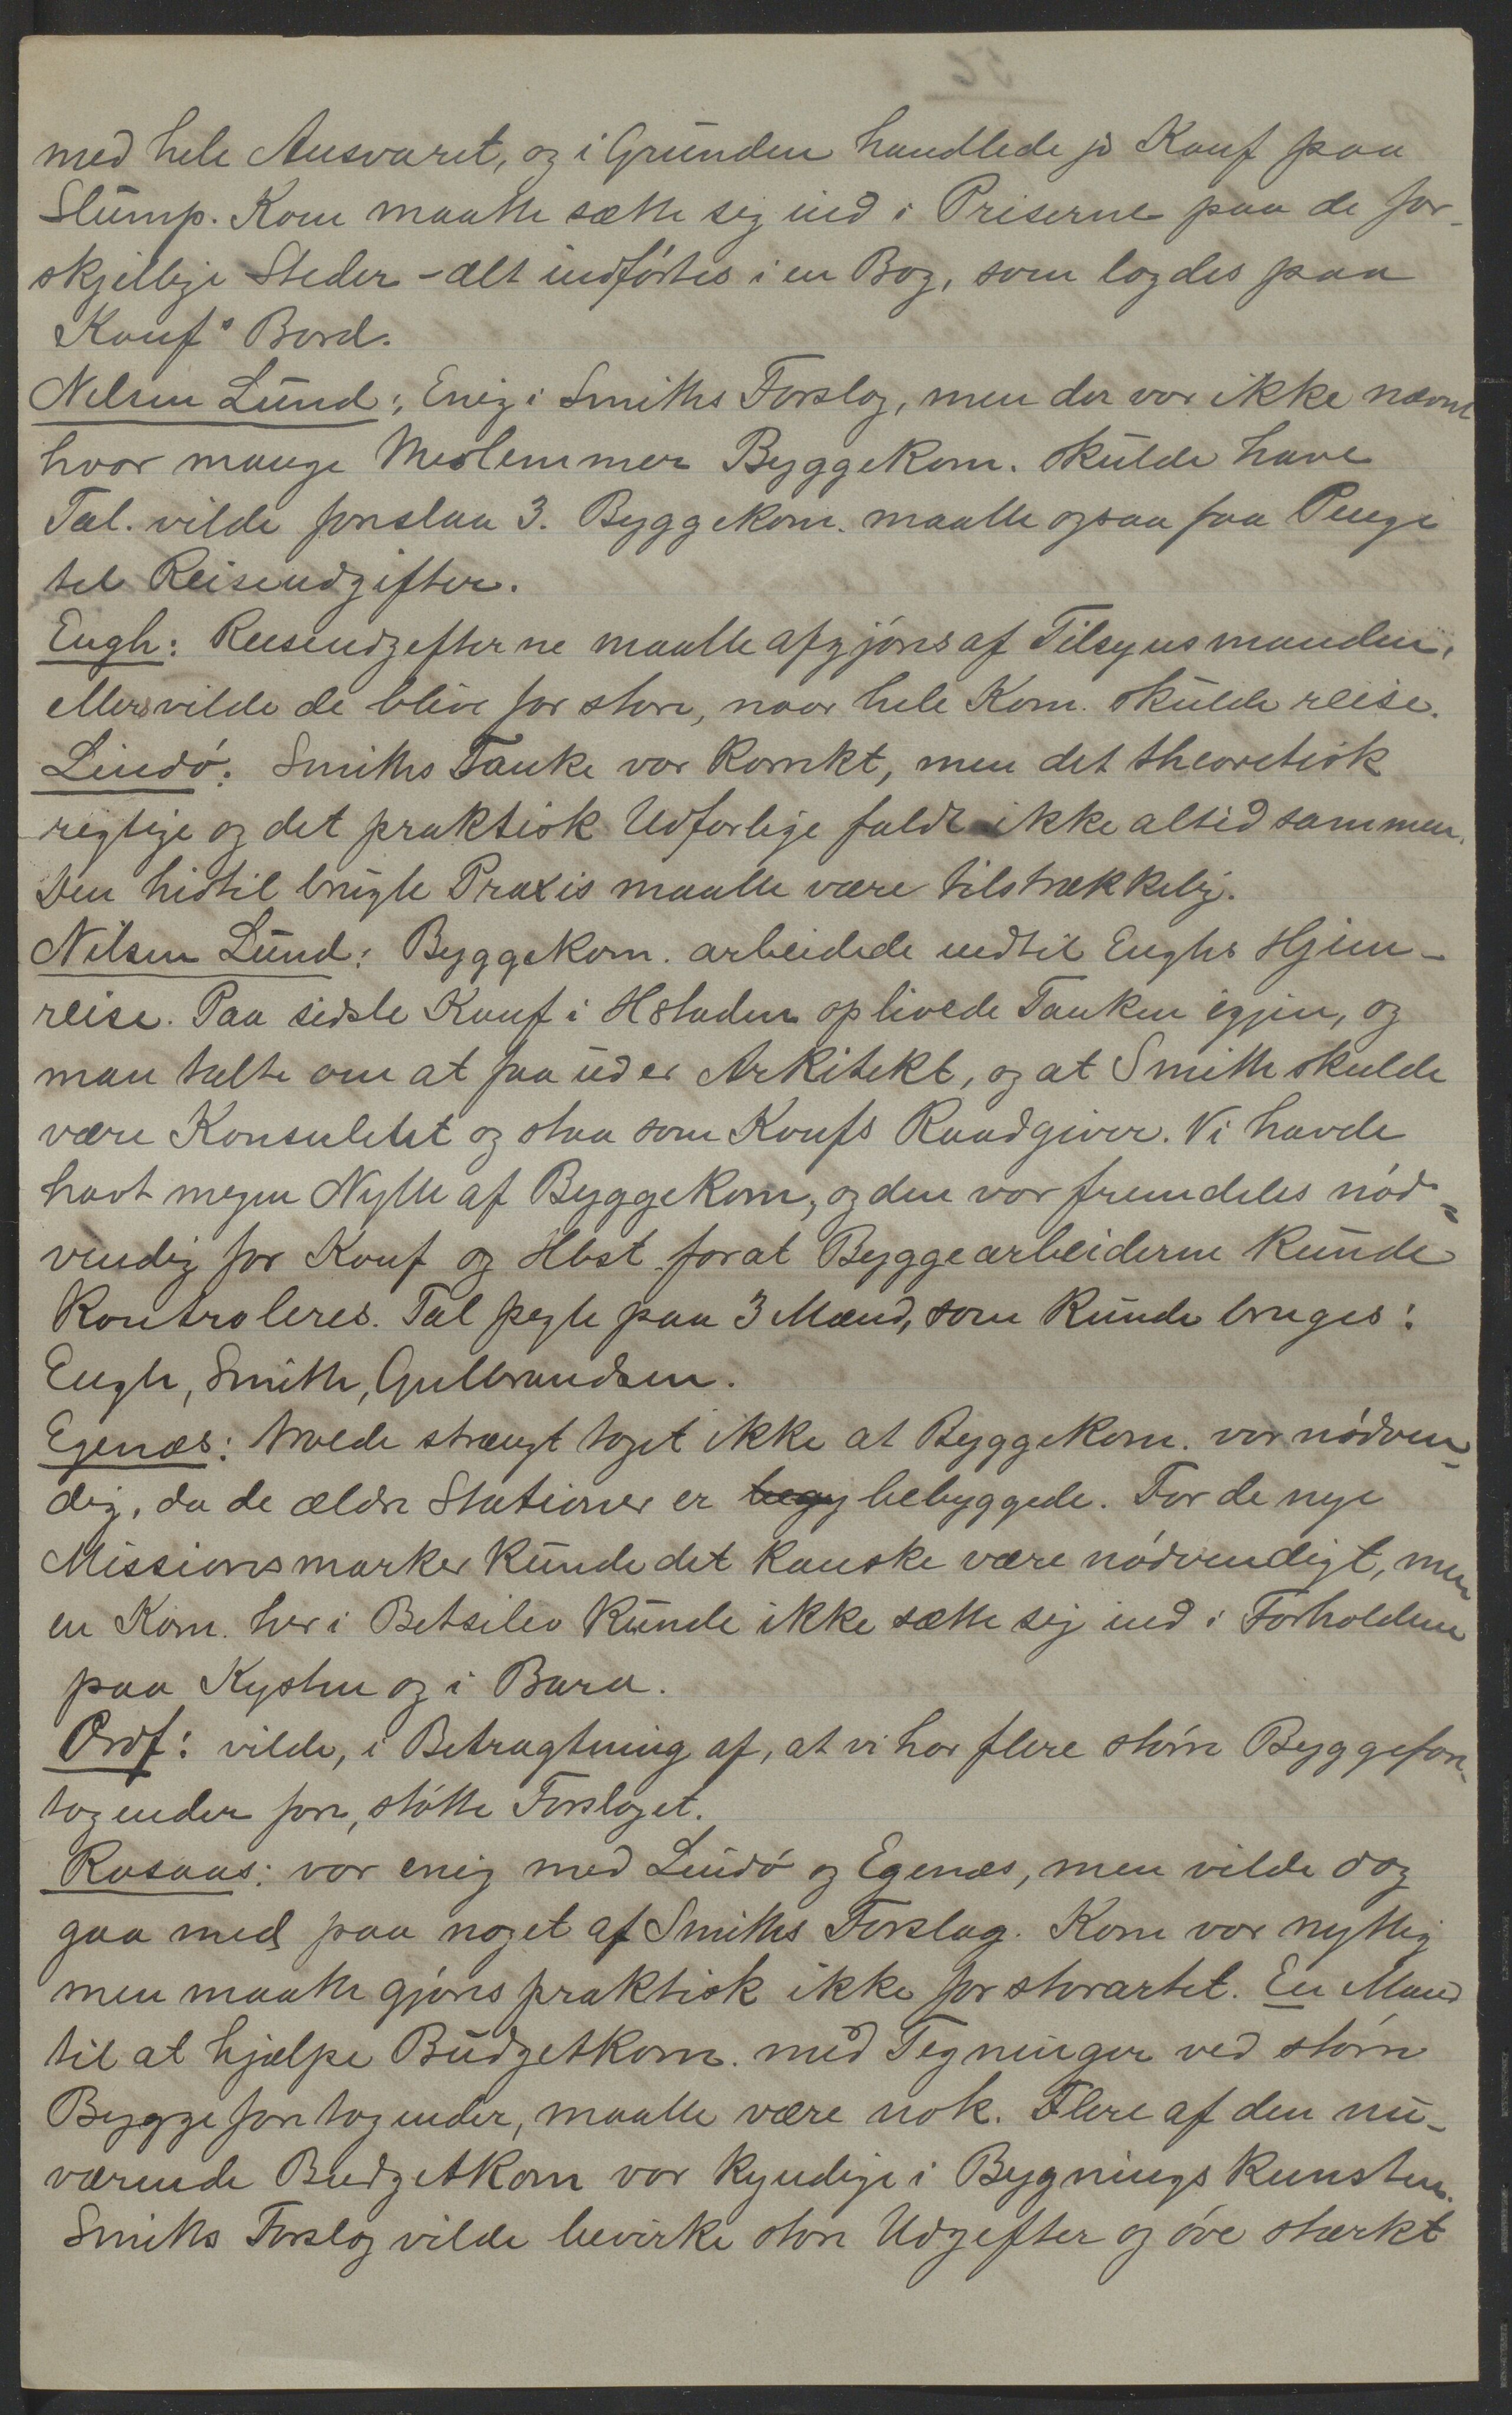 med hele Ansvaret, og i Grunden handlede jo Konf paa
Slump. Kom maatte sætte sig ind i Priserne paa de for-
skjellige Steder – alt indførtes i en Bog, som lagdes paa
Konfs Bord.
Nilsen Lund: Enig i Smiths Forslag, men der var ikke nævnt
hvor mange Medlemmer Byggekom. skulde have
Tal. vilde foreslaa 3. Byggekom. maatte ogsaa faa Penge
til Reiseudgifter.
Engh: Reiseudgifterne maatte afgjøres af Tilsynsmanden,
ellers vilde de blive for store, naar hele Kom. skulde reise.
Lindø: Smiths Tanke var korrekt, men det theoretisk
rigtige og det praktisk Udførlige faldt ikke altid sammen.
Den hidtil brugte Praxis maatte være tilstrækkelig.
Nilsen Lund: Byggekom. arbeidede indtil Enghs Hjem-
reise. Paa sidste Konf i Hstaden oplivede Tanken igjen, og
man talte om at faa ud en Arkitekt, og at Smith skulde
være Konsulent og staa som Konfs Raadgiver. Vi havde
havt megen Nytte af Byggekom, og den var fremdeles nød-
vendig for Konf og Hbst forat Byggearbeiderne kunde
kontroleres. Tal pegte paa 3 Mænd, som kunde bruges:
Engh, Smith, Gulbrandsen.
Egenæs: troede strængt taget ikke at Byggekom. var nødven-
dig, da de ældre Stationer er begy bebyggede. For de nye
Missionsmarker kunde det kanske være nødvendigt, men
en Kom. her i Betsileo kunde ikke sætte sig ind i Forholdene
paa Kysten og i Bara.
Ordf: vilde, i Betragtning af, at vi har flere større Byggefore-
tagender fore, støtte Forslaget.
Rosaas: var enig med Lindø og Egenæs, men vilde dog
gaa med paa noget af Smiths Forslag. Kom var nyttig
men maatte gjøres praktisk ikke for storartet. En Mand
til at hjælpe Budgetkom. med Tegninger ved større
Byggeforetagender, maatte være nok. Flere af den nu-
værende Budgetkom var kyndige i Bygningskunsten.
Smiths Forslag vilde bevirke store Udgifter og øve stærkt